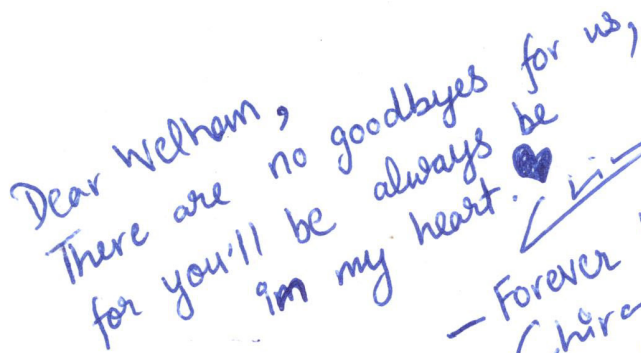 Dear Welham,
There are no goodbyes for us,
for you'll be always be
in my heart.
- Forever